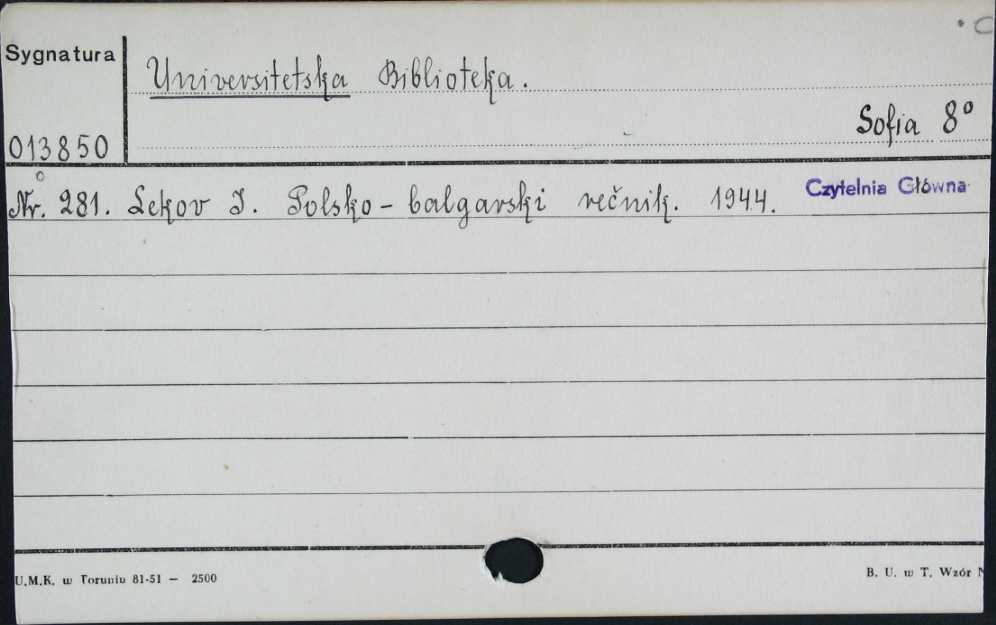 Sygnatura
Universitetska Biblioteka.
Sofia 8°
013850
Nr. 281. Lekov I. Polsko-balgarski rečnik. 1944.
Czytelnia Główna
U.M.K. w Toruniu 81-51 — 2500
B. U. w T. Wzór